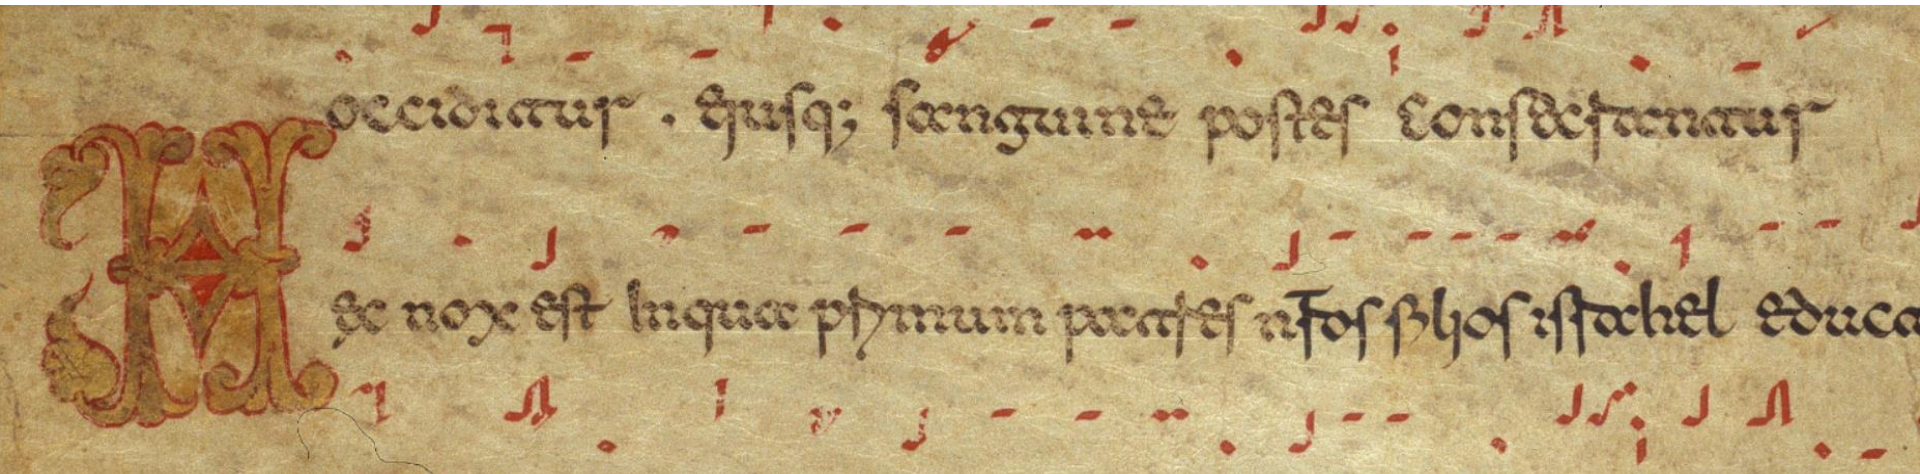 occiditur . eiusq; sanguine postes consecrantur
Hec nox est In qua primum patres nros filios israhel educa